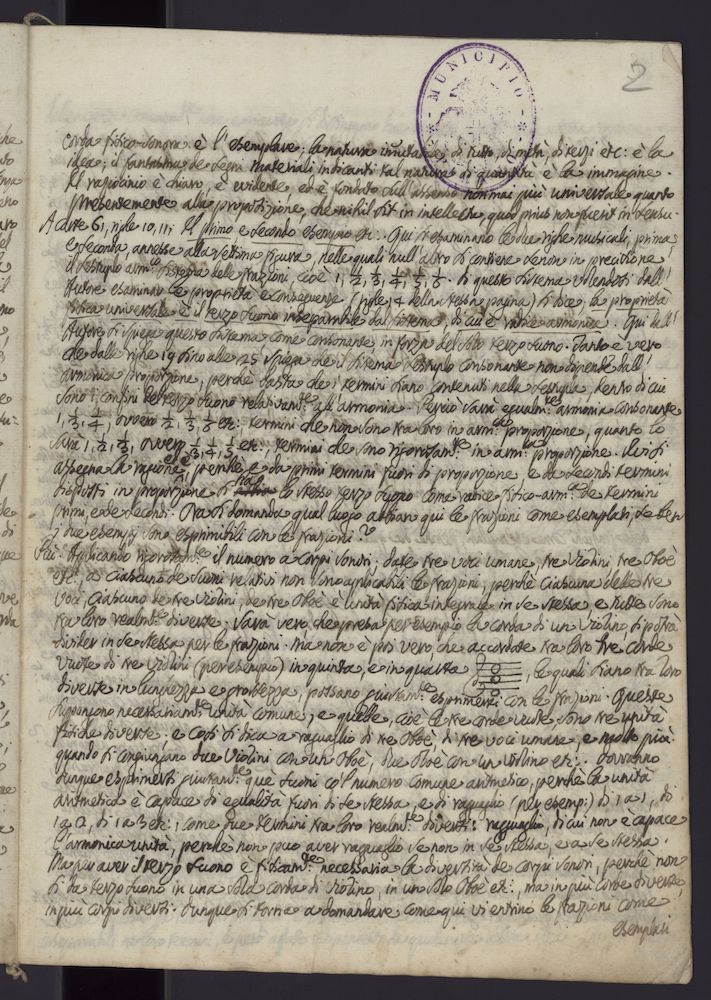 MUNICIPIO
2
corda fisico-sonora è l'esemplare; la natura inmutabile di tutto, di metà, di terzi etc: è la
idea; il fantasma de segni materiali indicanti tal natura di quantità è la immagine.
Il raziocinio è chiaro, è evidente, ed è fondato sull'assenso non mai più universale quanto
presentemente alla proposizione, che nihil sit in intellectu, quod prius non fuerit in sensu.
A carte 61, righe 10, 11: Il primo e secondo esempio etc. Qui si esaminano le due righe musicali, prima,
e seconda, annesse alla settima figura, nelle quali null'altro si contiene senonse in precisione
il sestuplo arm:co sistema delle frazioni, cioè 1, 1/2, 1/3, 1/4, 1/5, 1/6. Di questo sistema volendosi dall'
Autore esaminar le proprietà e conseguenze (righe 14 della stessa pagina) si dice; la proprietà
fisica universale è il terzo suono inseparabile dal sistema, di cui è radice armonica. Qui dall'
Autore si spiega questo sistema come consonante in forza del solo terzo suono. Tanto è vero
che dalle righe 19 sino alle 25 spiega che il sistema sestuplo consonante non dipende dall'
armonica proporzione, perchè basta che i termini siano contenuti nella sestupla, dentro di cui
sono i confini del terzo suono relativam:te all'armonia. Perciò sarà egualm:te armonia consonante
1, 1/3, 1/4, ovvero 1/2, 1/3, 1/5 etc: termini che non sono tra loro in arm:ca proporzione, quanto lo
sarà 1, 1/2, 1/3, ovvero 1/3, 1/4, 1/5 etc; termini che sono rigorosam:te in arm:ca proporzione. Ivi si
assegna la ragione; perchè e da primi termini fuori di proporzione e da secondi termini
disposti in proporzione si ha lo stesso terzo suono come radice fisico-arm:ca de termini
primi, e de secondi. Ora si domanda qual luogo abbian qui le frazioni come esemplari, seben
i due esempi sono esprimibili con le frazioni?
Più. Applicando rigorosam:te il numero a corpi sonori, date tre voci umane, tre Violini, tre Oboè
etc, a ciascuno de suoni relativi non sono applicabili le frazioni, perchè ciascuna delle tre
voci, ciascuno de tre Violini, de tre Oboè è unità fisica integrale in se stessa, e tutte sono
tra loro realm:te diverse; Sarà vero che presa per esempio la corda di un Violino, si potrà
divider in se stessa per le frazioni. Ma non è poi vero, che accordate tra loro tre corde
vuote di tre Violini (per esempio) in quinta, e in quarta, le quali siano tra loro
diverse in lunghezza e grossezza, possano giustam:te esprimersi con le frazioni. Queste
suppongono necessariam:te unità comune; e quelle, cioè le tre corde vuote sono tre unità
fisiche diverse. e così si dica a raguaglio di tre Oboè, di tre voci umane, e molto più
quando si congiungano due Violini con un Oboè, due Oboè con un Violino etc. Dovranno
dunque esprimersi giustam:te que suoni col numero comune aritmetico, perchè la unità
aritmetica è capace di egualità fuori di se stessa, e di raguaglio (per esemp:) di 1 a 1, di
1 a 2, di 1 a 3 etc:, come due termini tra loro realm:te diversi: raguaglio, di cui non è capace
l'armonica unità, perchè non può aver raguaglio se non in se stessa, e a se stessa.
Ma per aver il terzo suono è fisicam:te necessaria la diversità de corpi sonori, perchè non
si ha terzo suono in una sola corda di Violino, in un solo Oboè etc:, ma in più corde diverse,
in più corpi diversi. Dunque si torna a domandare come qui vi entrino le frazioni come
esemplari